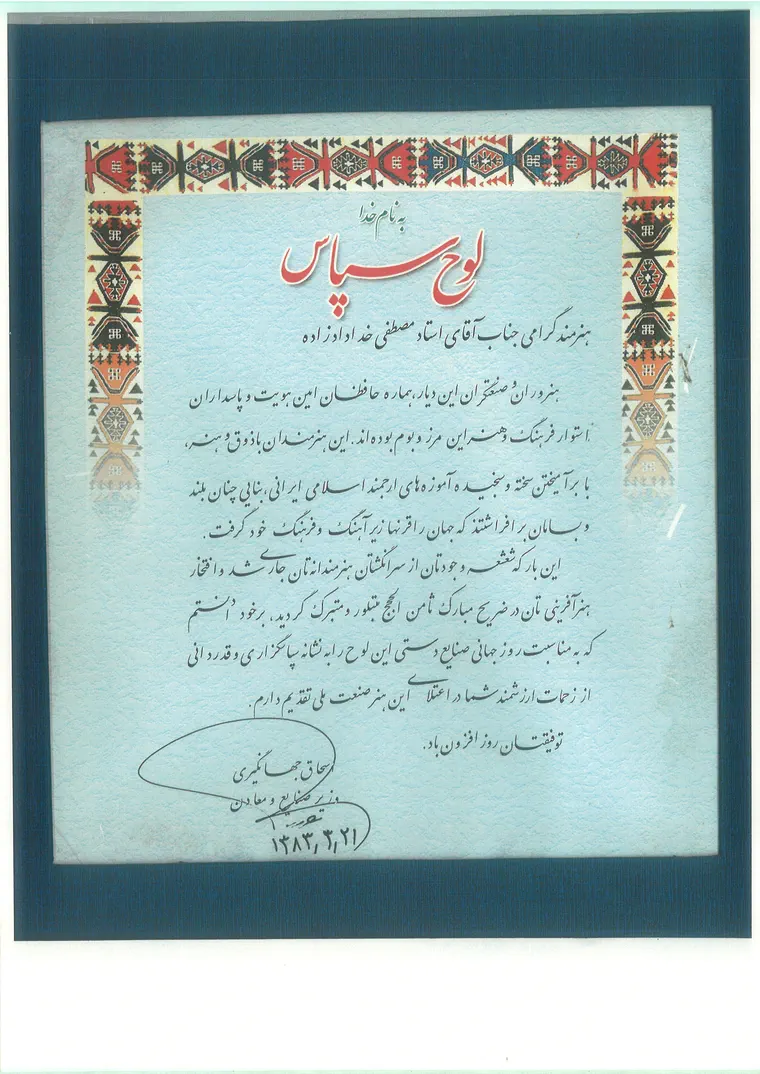 به نام خدا
لوح سپاس
هنرمند گرامی جناب آقای استاد مصطفی خدادادزاده
هنروران و صنعتگران این دیار، هماره حافظان امین هویت و پاسداران
استوار فرهنگ و هنر این مرز و بوم بوده‌اند. این هنرمندان باذوق و هنر،
با برآمیختن سخته و سنجیده آموزه‌های ارجمند اسلامی ایرانی، بنایی چنان بلند
و بسامان برافراشتند که جهان را قرنها زیر آهنگ و فرهنگ خود گرفت.
این بار که شعشعه وجودتان از سرانگشتان هنرمندانه‌تان جاری شد و افتخار
هنرآفرینی‌تان در ضریح مبارک ثامن الحجج متبلور و متبرک گردید، برخود دانستم
که به مناسبت روز جهانی صنایع دستی این لوح را به نشانه سپاسگزاری و قدردانی
از زحمات ارزشمند شما در اعتلای این هنر صنعت ملی تقدیم دارم.
توفیقتان روز افزون باد.
اسحاق جهانگیری
وزیر صنایع و معادن
۱۳۸۳,۳,۲۱